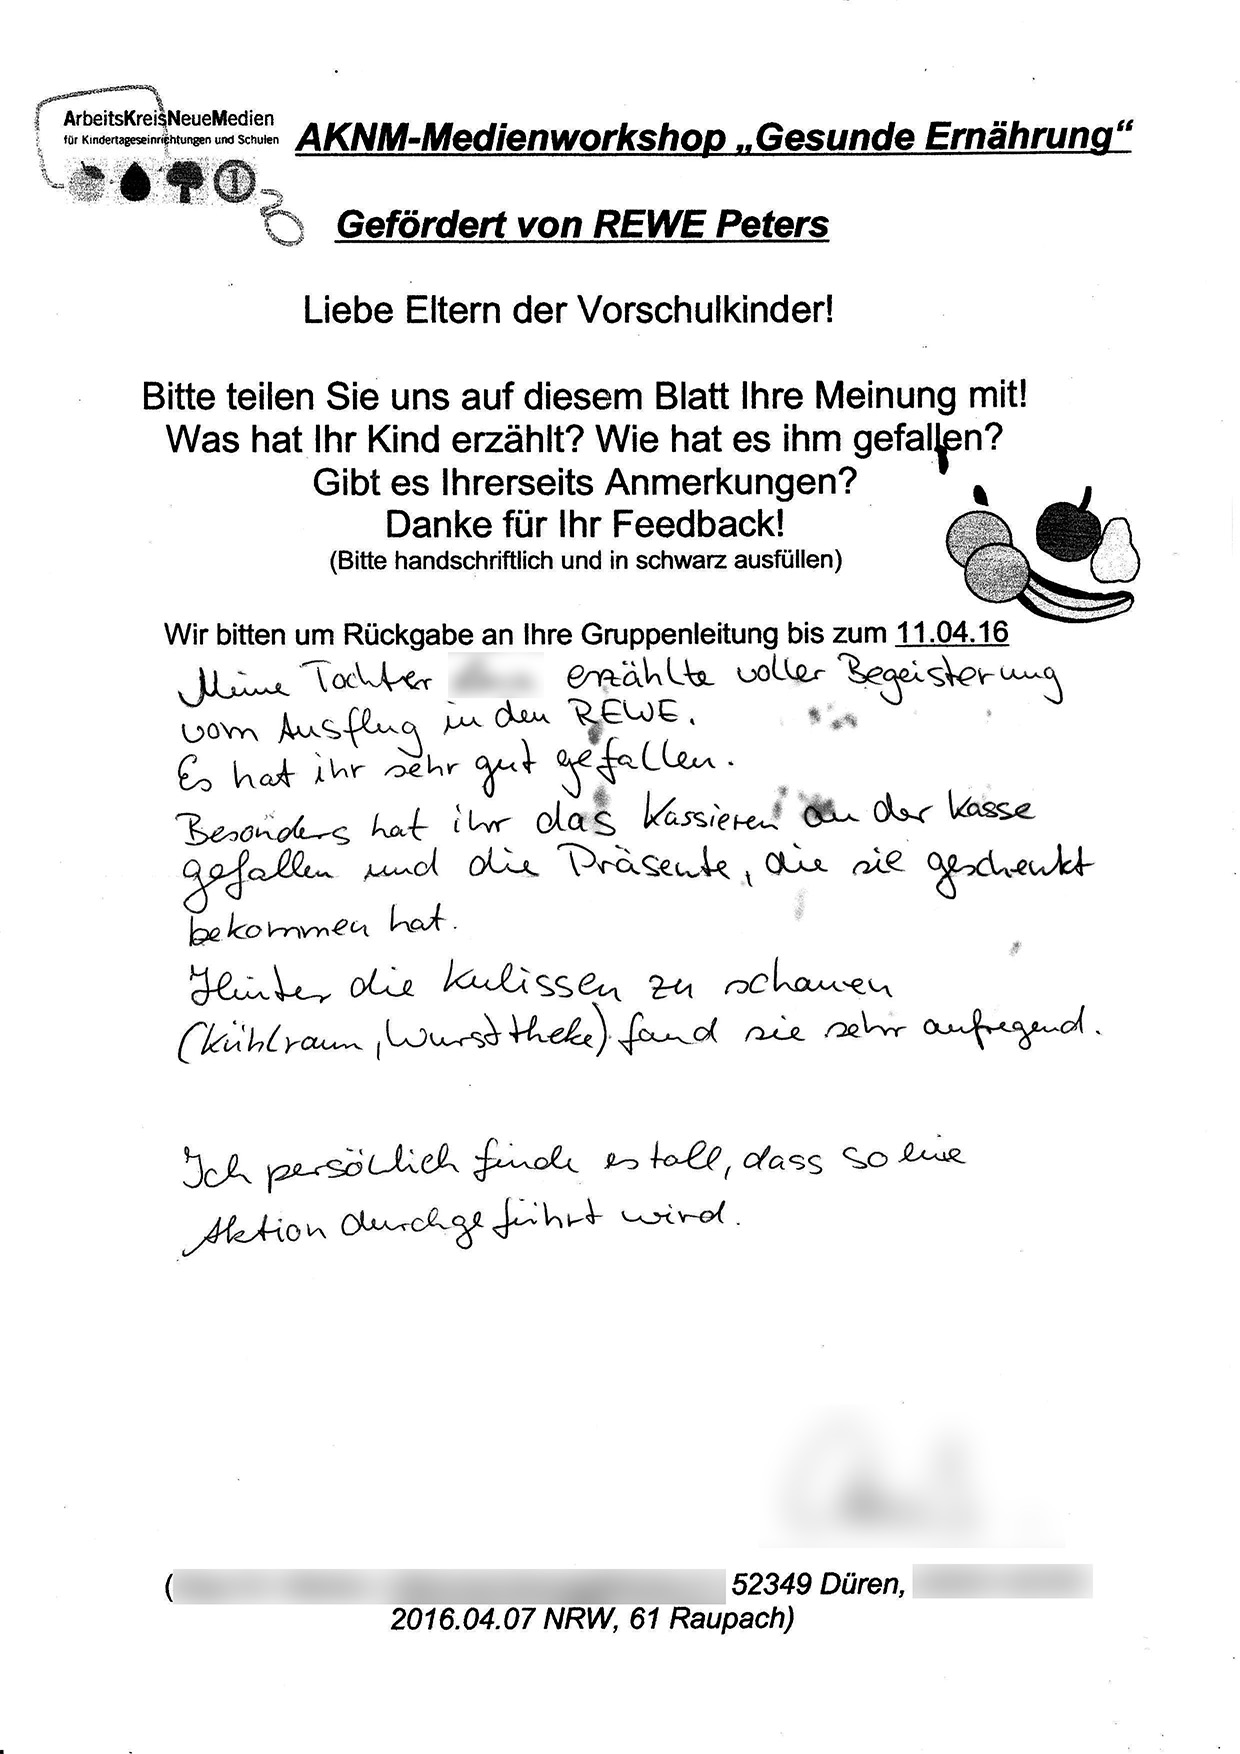 ArbeitsKreisNeueMedien
für Kindertageseinrichtungen und Schulen
1
AKNM-Medienworkshop „Gesunde Ernährung“
Gefördert von REWE Peters
Liebe Eltern der Vorschulkinder!
Bitte teilen Sie uns auf diesem Blatt Ihre Meinung mit!
Was hat Ihr Kind erzählt? Wie hat es ihm gefallen?
Gibt es Ihrerseits Anmerkungen?
Danke für Ihr Feedback!
(Bitte handschriftlich und in schwarz ausfüllen)
Wir bitten um Rückgabe an Ihre Gruppenleitung bis zum 11.04.16
Meine Tochter erzählte voller Begeisterung
vom Ausflug in den REWE.
Es hat ihr sehr gut gefallen.
Besonders hat ihr das Kassieren an der Kasse
gefallen und die Präsente, die sie geschenkt
bekommen hat.
Hinter die Kulissen zu schauen
(Kühlraum, Wursttheke) fand sie sehr aufregend.
Ich persölich finde es toll, dass so eine
Aktion durchgeführt wird.
( 52349 Düren,
2016.04.07 NRW, 61 Raupach)